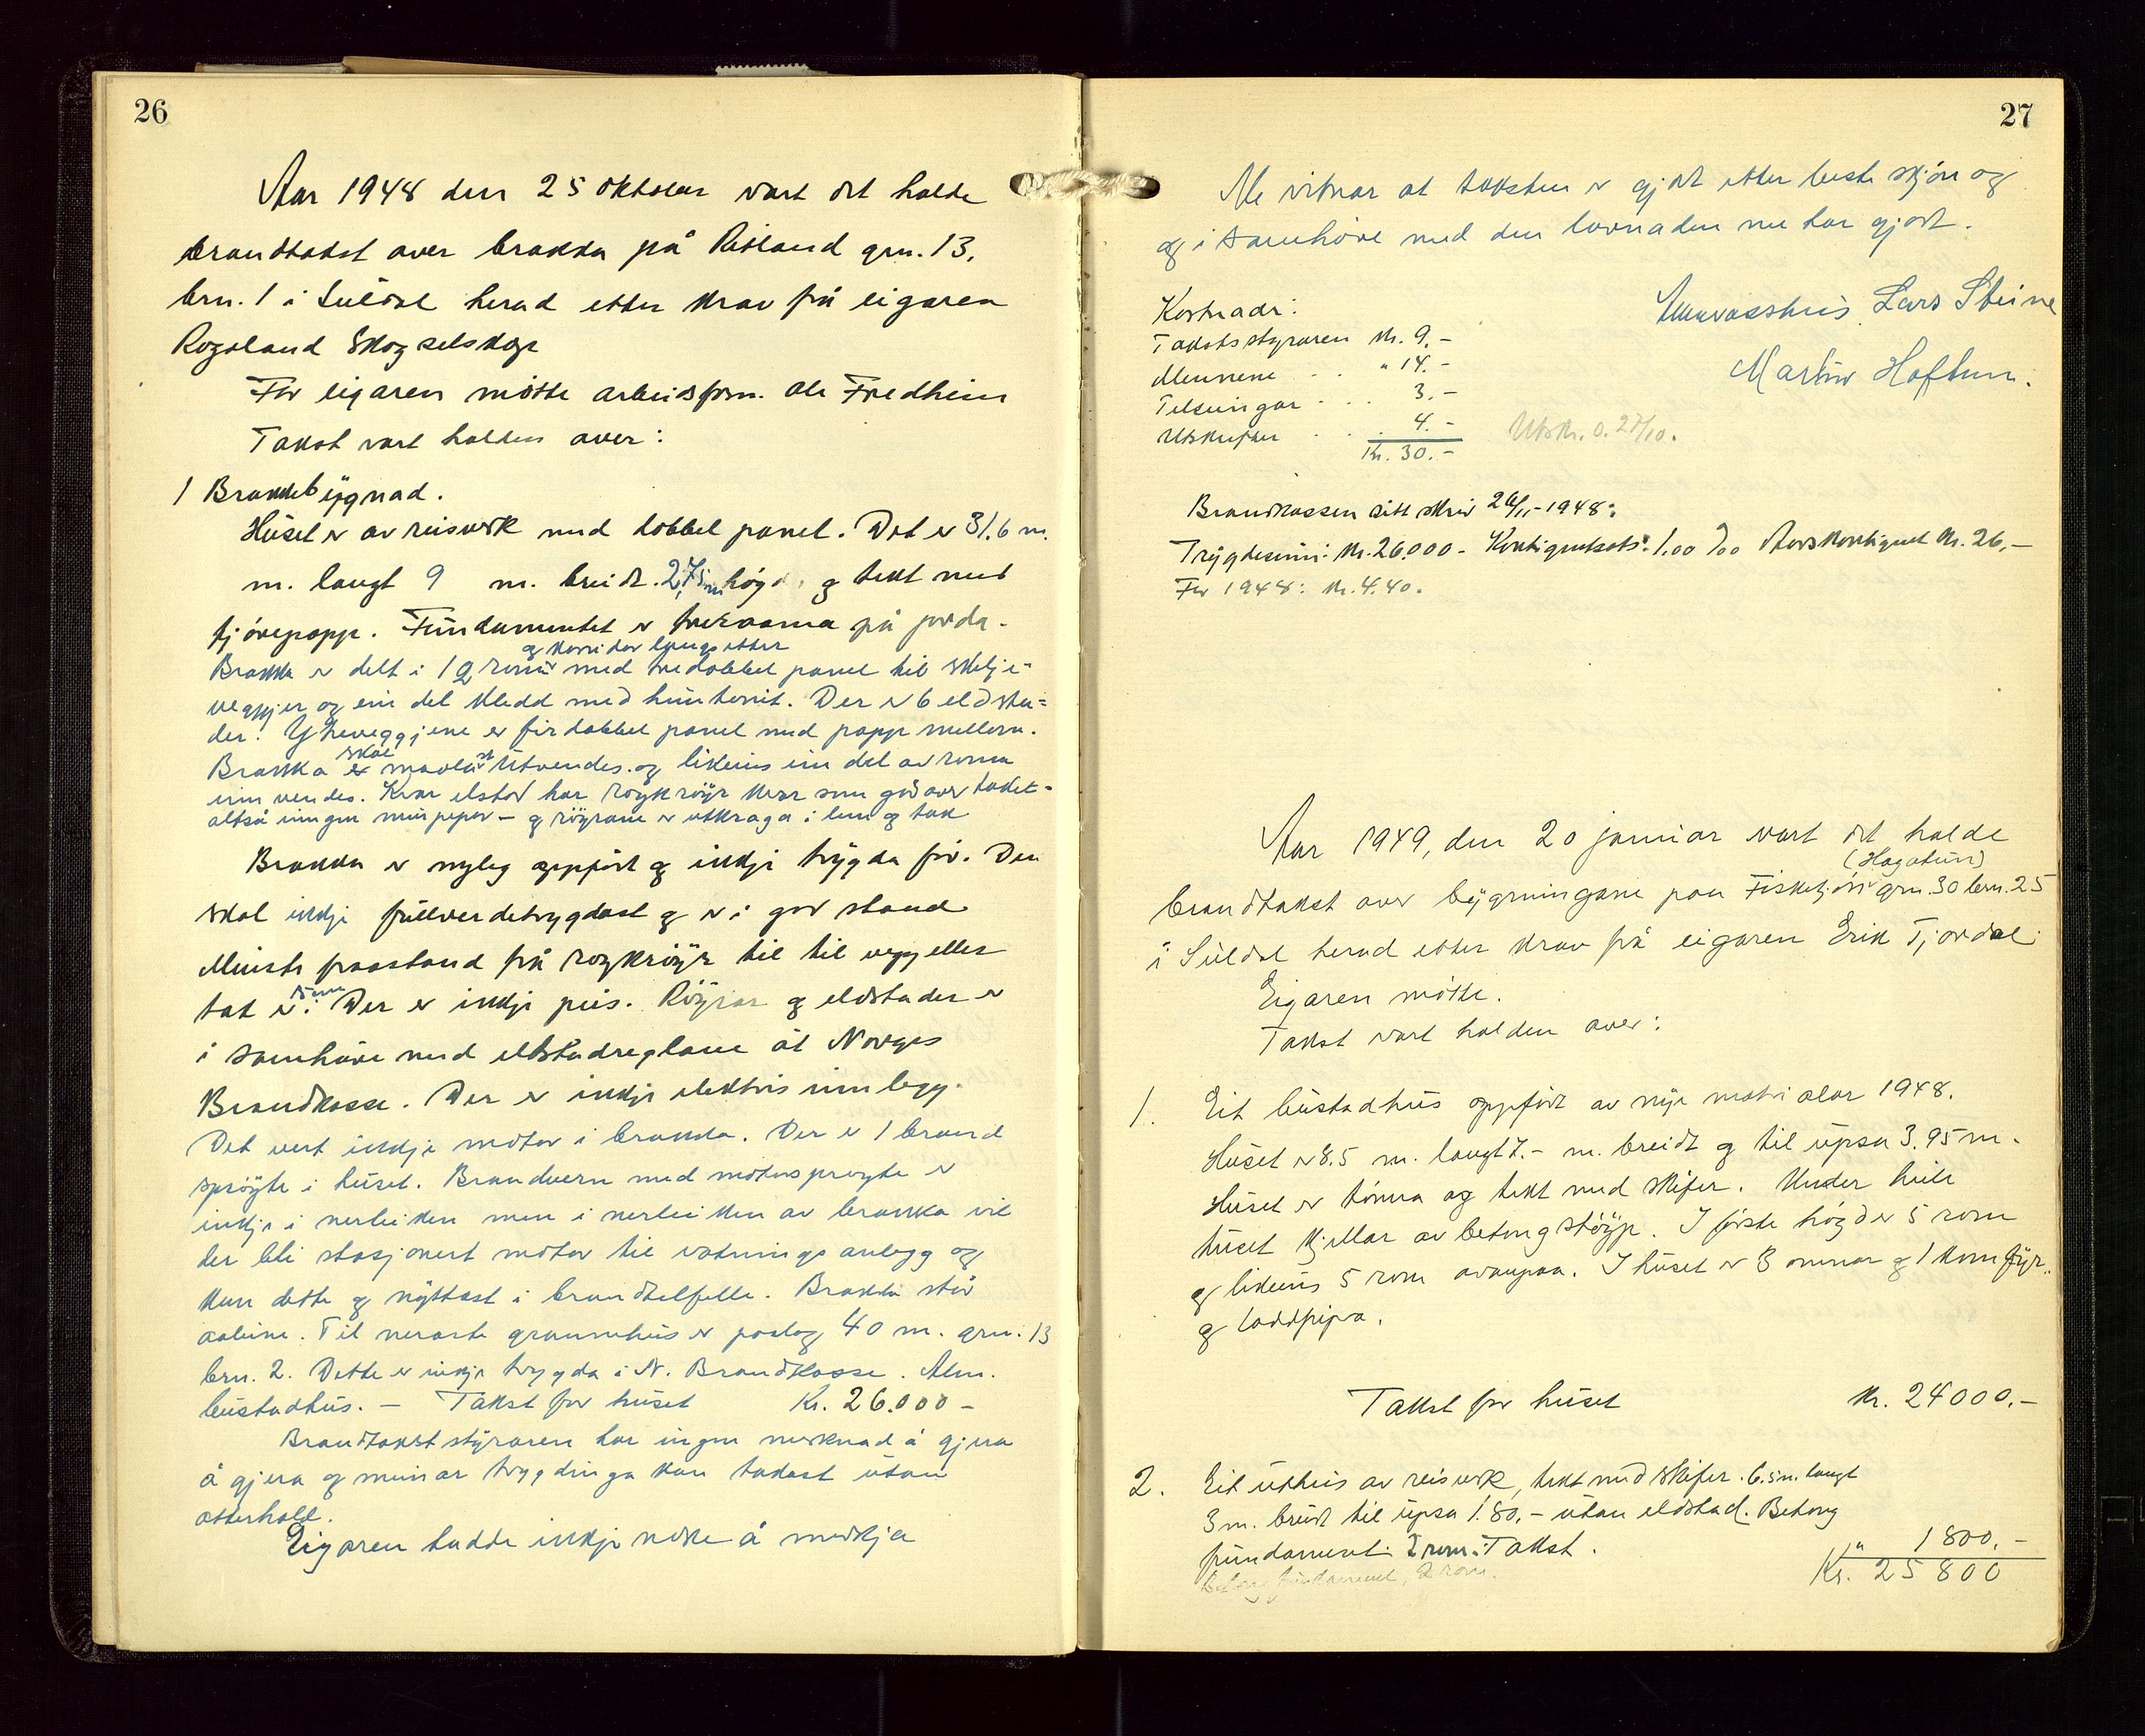 26
Aar 1948 den 25 oktober vart det halde
brandtakst over brakka på Risland grn. 13,
brn. 1 i Suldal herad etter krav frå eigaren
Rogaland Skogselskap
For eigaren møtte arbeidsform. Ole Fredheim
Takst vart halden over:
1 Brakkebygnad.
Huset er av reisverk med dobbel panel. Det er 31.6 m.
m. langt 9 m. breidt. 2,75 m høgd, og tekt med
tjørepapp. Fundamentet er på jorda.
og korridor langs etter
Brakka er delt i 12 rom med tredobbel panel til skilje-
veggjer og ein del kledd med huntonit. Der er 6 eldsta-
der. Ytreveggjene er firdobbel panel med papp mellom.
skal
Brakka er maolast Utvendes og likeins ein del av roma
innvendes. Kvar elstad har røykrøyr kvar som går over taket -
altså ingen murpipor - og røyrane er utkraga i lem og tak
Brakka er nyleg oppført og inkje trygda før. Den
skal inkje fullverdetrygdast og er i god stand
Minste fraastand frå røykrøyr til til vegg eller
tak er 15 cm. Der er inkje peis. Røyrar og eldstader er
i samhøve med eldstadreglane åt Norges
Brandkasse. Der er inkje elektrisk innlegg.
Det vert inkje motor i brakka. Der er 1 brand
sprøyte i huset. Brandvern med motorsprøyte er
inkje i nerleiken men i nerleiken av brakka vil
der bli stasjonert motor til vatningsanlegg og
kan dette og nyttast i brandtilfelle. Brakka står
aaleine. Til neraste grannehus er paalag 40 m. grn. 13
brn. 2. Dette er inkje trygda i N. Brandkasse. Alm.
bustadhus. - Takst for huset Kr. 26.000 -
Brandtakststyraren har ingen merknad å gjera
å gjera og meinar trygdinga kan takast utan
atterhald.
Eigaren hadde inkje noke å merkja
27
Me vitnar at taksten er gjort etter beste skjøn og
og i samhøve med den lovnaden me har gjort.
Kostnadr:
Takststyraren kr. 9.-
Mennene . . " 14.-
Telsingar . . . 3.-
Utskrifter . . . 4.-
Utskr. o. 27/10.
Kr. 30.-
Lars Steine
Martin Hoftun.
Brandkassen sitt skriv 26/11-1948:
Trygdesum: kr. 26.000 - Kontigentsats: 1.00 ‰ Aarskontigent kr. 26,-
For 1948: kr. 4.40.
Aar 1949, den 20 januar vart det halde
(Hagatun)
brandtakst over bygningane paa Fisketjøn grn. 30 brn. 25
i Suldal herad etter krav frå eigaren Erik Tjordal.
Eigaren møtte.
Takst vart halden over:
1. Eit bustadhus oppført av nye matrialar 1948.
Huset er 8.5 m. langt 7.- m. breidt og til upsa 3.95 m.
Huset er tømra og tekt med skifer. Under heile
huset kjellar av betongstøyp. I første høgd er 5 rom
og likeins 5 rom ovanpaa. I huset er 3 omnar og 1 komfyr.
og loddpipa.
Takst for huset kr. 24000.-
2. Eit uthus av reisverk, tekt med skifer. 6.5 m. langt
3 m. breidt til upsa 1.80.- utan eldstad. Betong
fundament. 2 rom. Takst. " 1800.-
Betong fundament, 2 rom.
Kr. 25800